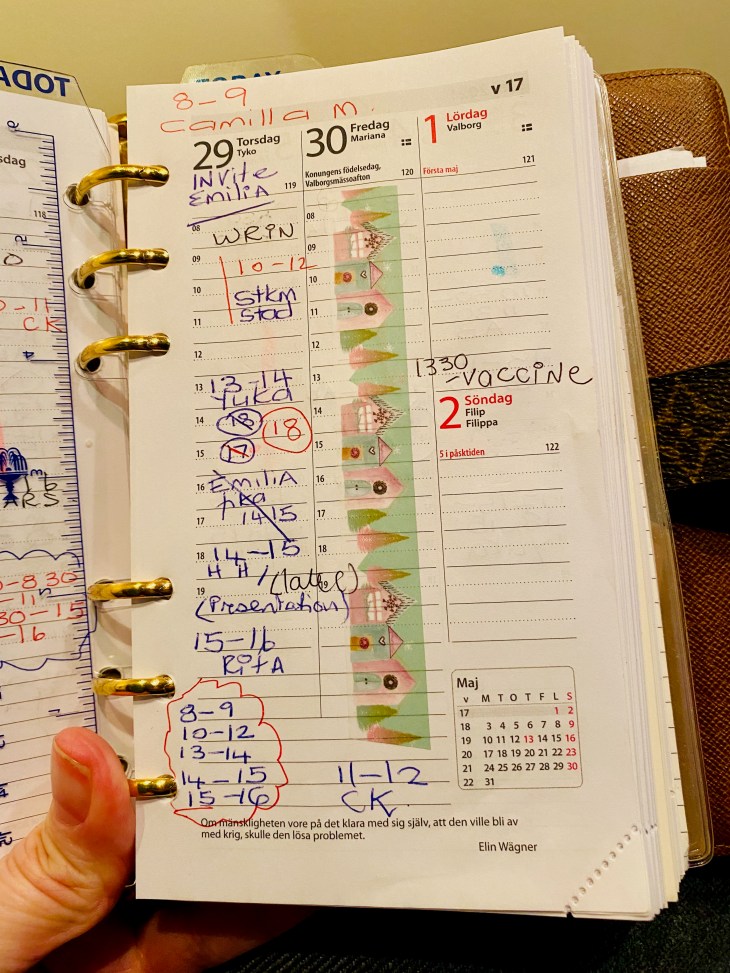 TODAY
TODAY
8-9
Camilla M.
v 17
29 Torsdag
Tyko
119
INVITE
EMILIA
08
WRIN
09
10-12
10
Stkm
11
Stad
12
13
13-14
14
18
18
15
17
16
EMILIA
fika
17
1415
18
14-15
H H /
(late)
19
(Presentation)
15-16
RitA
8-9
10-12
13-14
14-15
15-16
30 Fredag
Mariana
Konungens födelsedag,
Valborgsmässoafton
120
08
09
10
11
12
13
14
15
16
17
18
19
11-12
CK
1 Lördag
Valborg
Första maj
121
1330
-VACCINE
2 Söndag
Filip
Filippa
5 i påsktiden
122
Maj
v M T O T F L S
17 1 2
18 3 4 5 6 7 8 9
19 10 11 12 13 14 15 16
20 17 18 19 20 21 22 23
21 24 25 26 27 28 29 30
22 31
Om mänskligheten vore på det klara med sig själv, att den ville bli av
med krig, skulle den lösa problemet.
Elin Wägner
sdag
118
CK